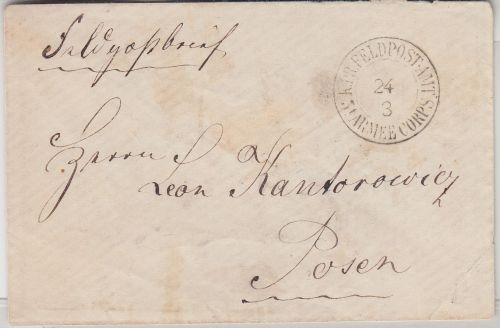 Feldpostbrief
K.PR.FELDPOST-AMT
24
3
ARMEE CORPS
Herrn
Leon Kantorowicz
Posen